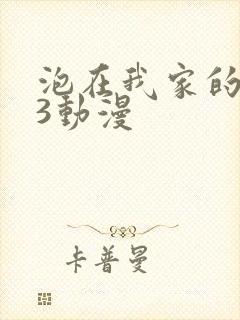 泡在我家的
3動漫
卡普曼